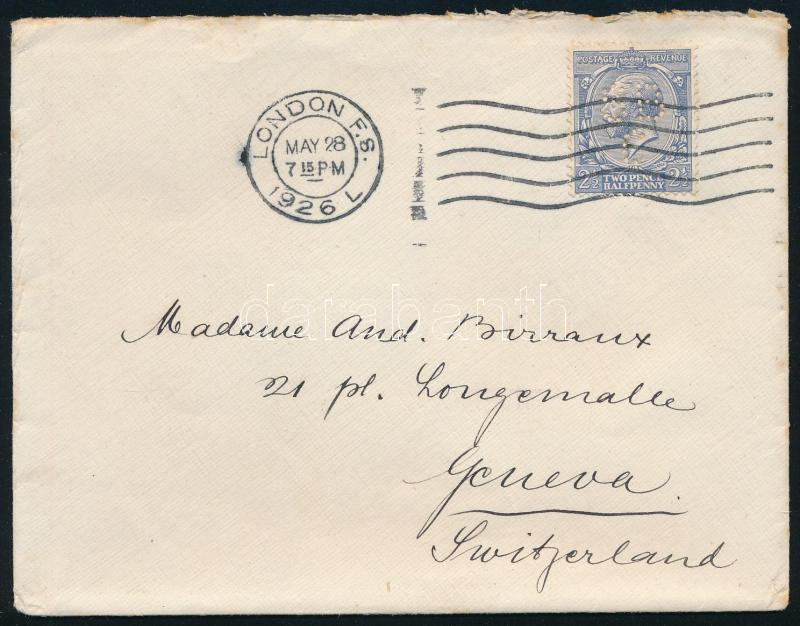 LONDON F.S.
MAY 28
7 15 PM
1926 L
POSTAGE REVENUE
2½ TWO PENCE HALFPENNY 2½
darabanth
Madame And. Birraux
21 pl. Longemalle
Geneva.
Switzerland